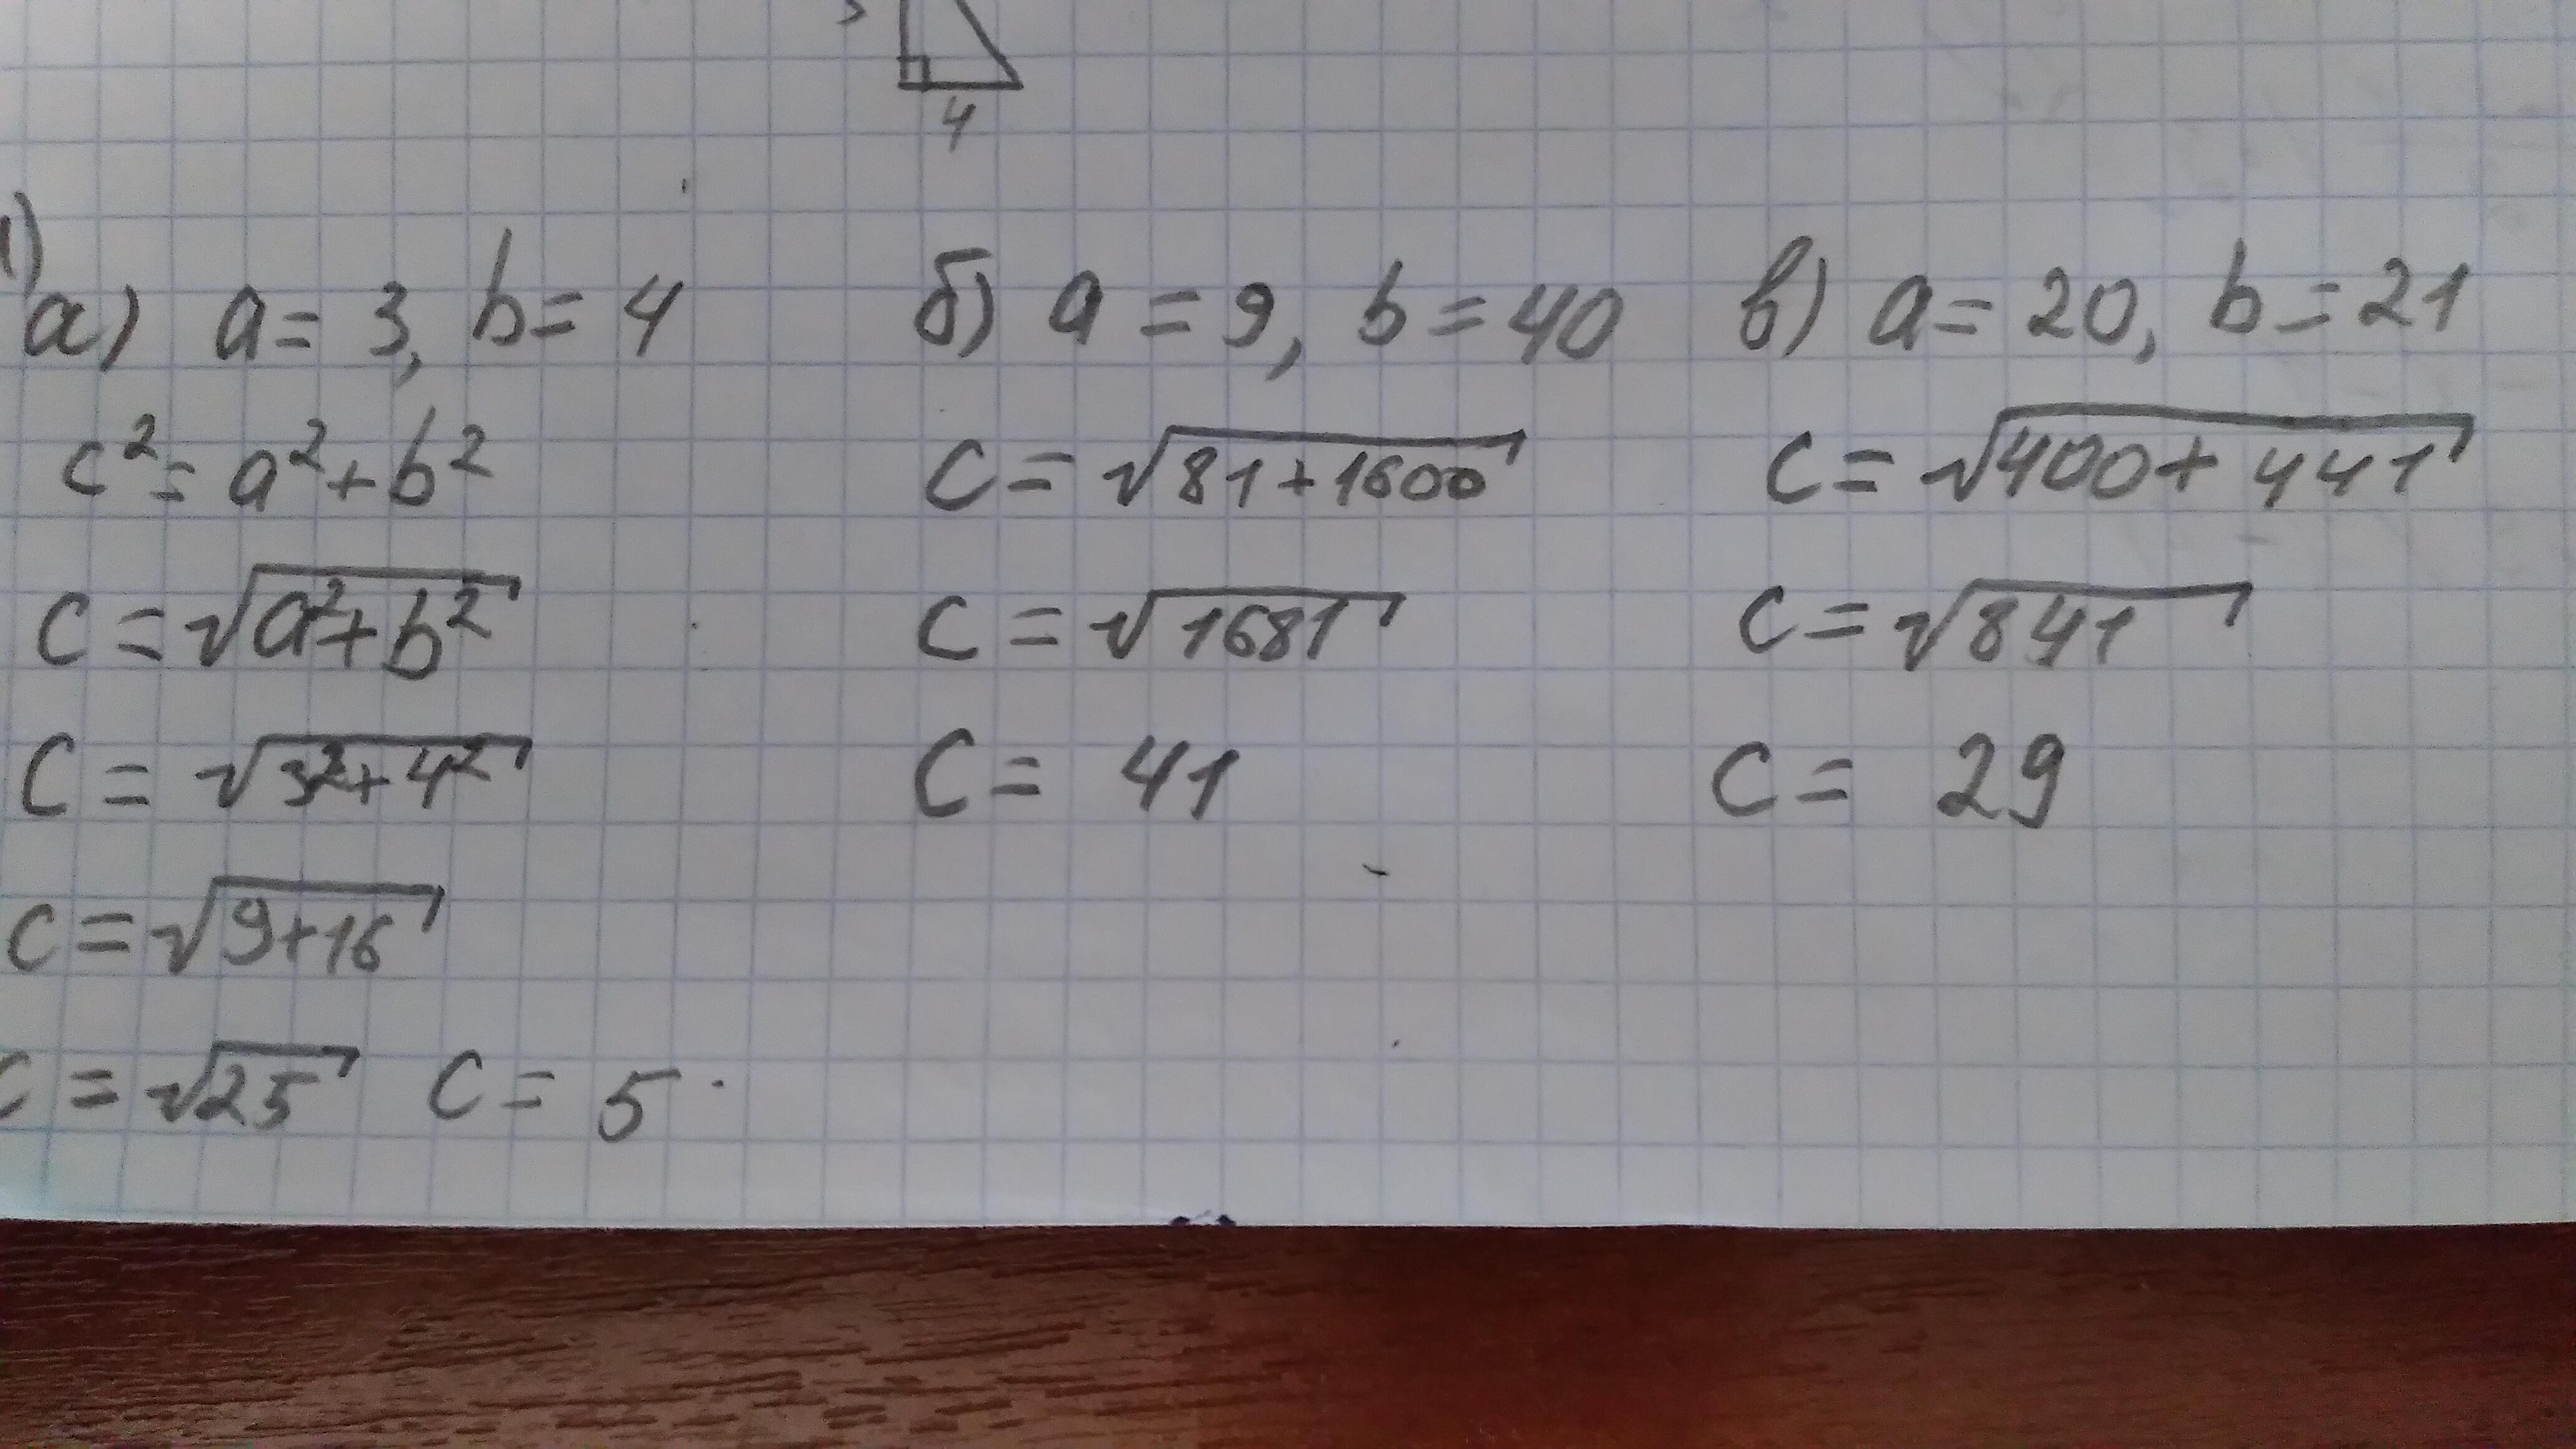 4
1)
а) a = 3, b = 4
c² = a² + b²
c = √a² + b²
c = √3² + 4²
c = √9 + 16
c = √25 c = 5
б) a = 9, b = 40
c = √81 + 1600
c = √1681
c = 41
в) a = 20, b = 21
c = √400 + 441
c = √841
c = 29